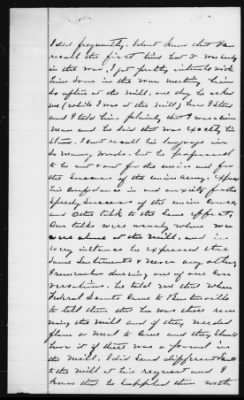 I did frequently. I dont know that I can
recall the first time but it was early
in the war. I got pretty intimate with
him some in the war meeting him
so often at the mill. one day he asked
me (while I was at the mill) how I stood
and I told him plainly that I was a Union
man and he said that was exactly his
Status. I cant recall his language in
so many words. but he professed
to be
for the union and for
the success of the union army.
his confidence in and anxiety for the
speedy success of the union cause
and other talk to the same effect.
Our talks were usually when we
were alone at the mill. and in
every instance he expressed the
same sentiments & never any other
I remember during one of our con
versations. he told me that when
Federal Scouts came to Huntsville
to tell them that he was there run
ning the mill and if they needed
flour or meal to come and they should
have it if there was a pound in
the mill. I did send different
to the mill at his request and I
know that he supplied them with